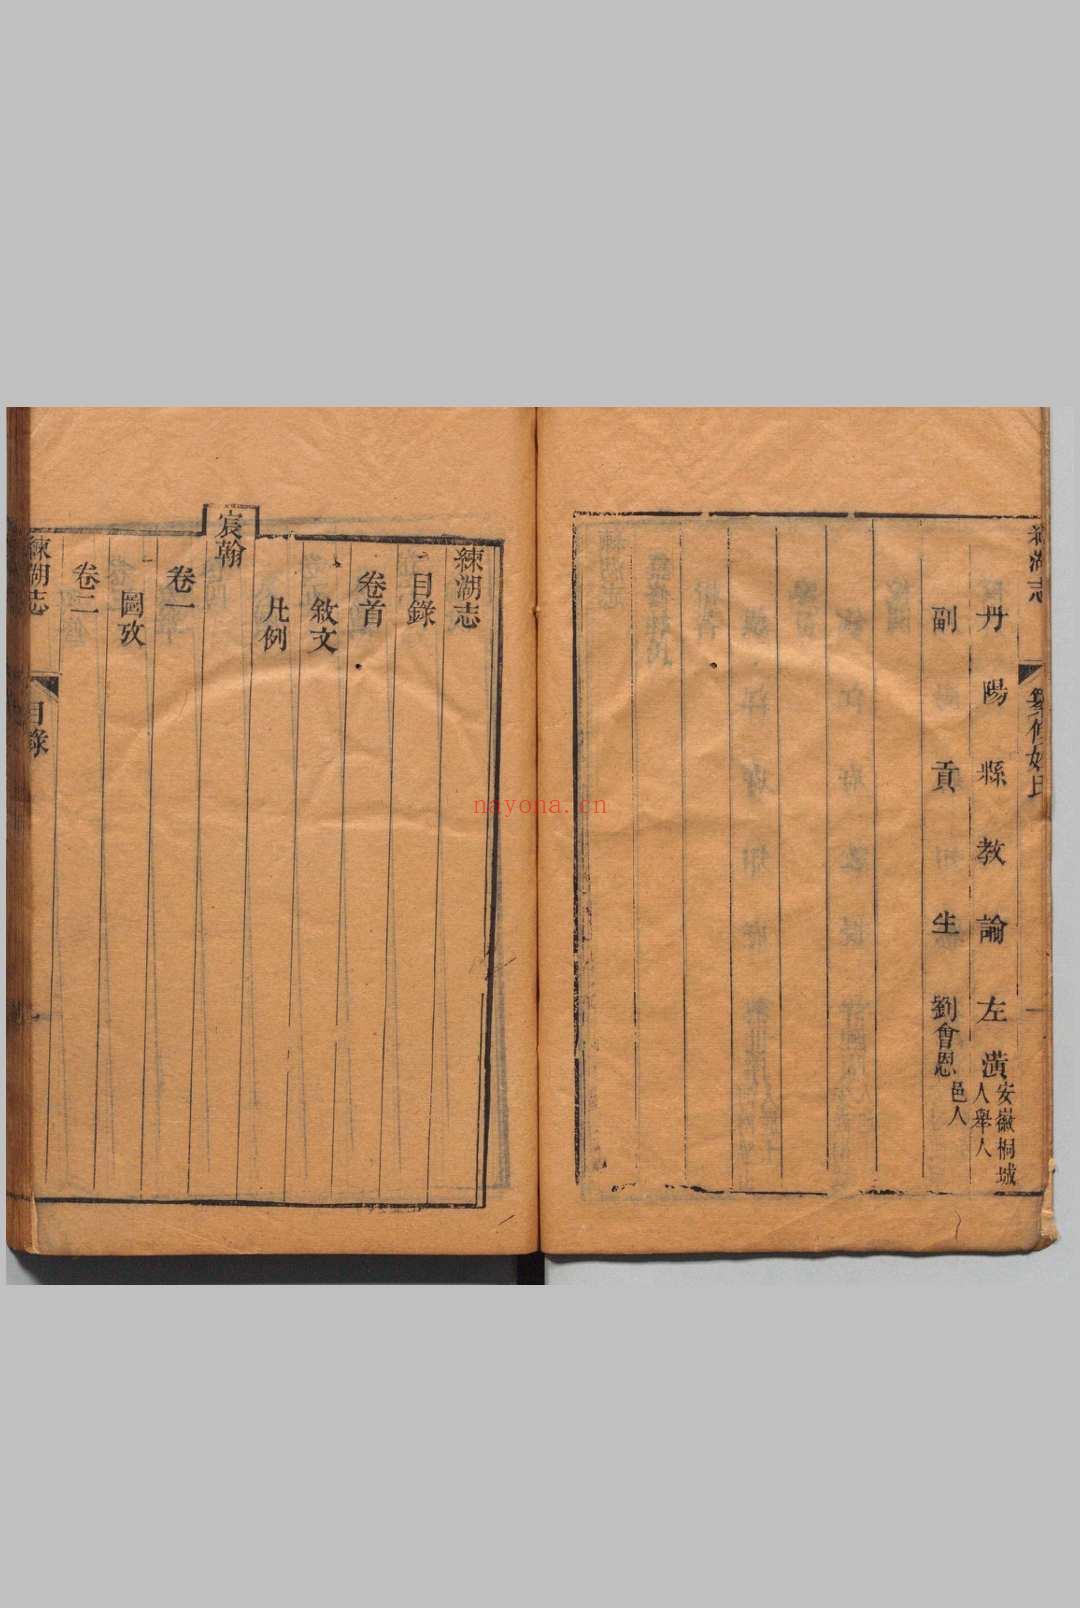 練湖志
丹陽縣教諭左潢安徽桐城人舉人
副貢生劉會恩邑人
練湖志
目錄
卷首
敘文
凡例
宸翰
卷一
圖攷
卷二
練湖志
目錄
nayona.cn